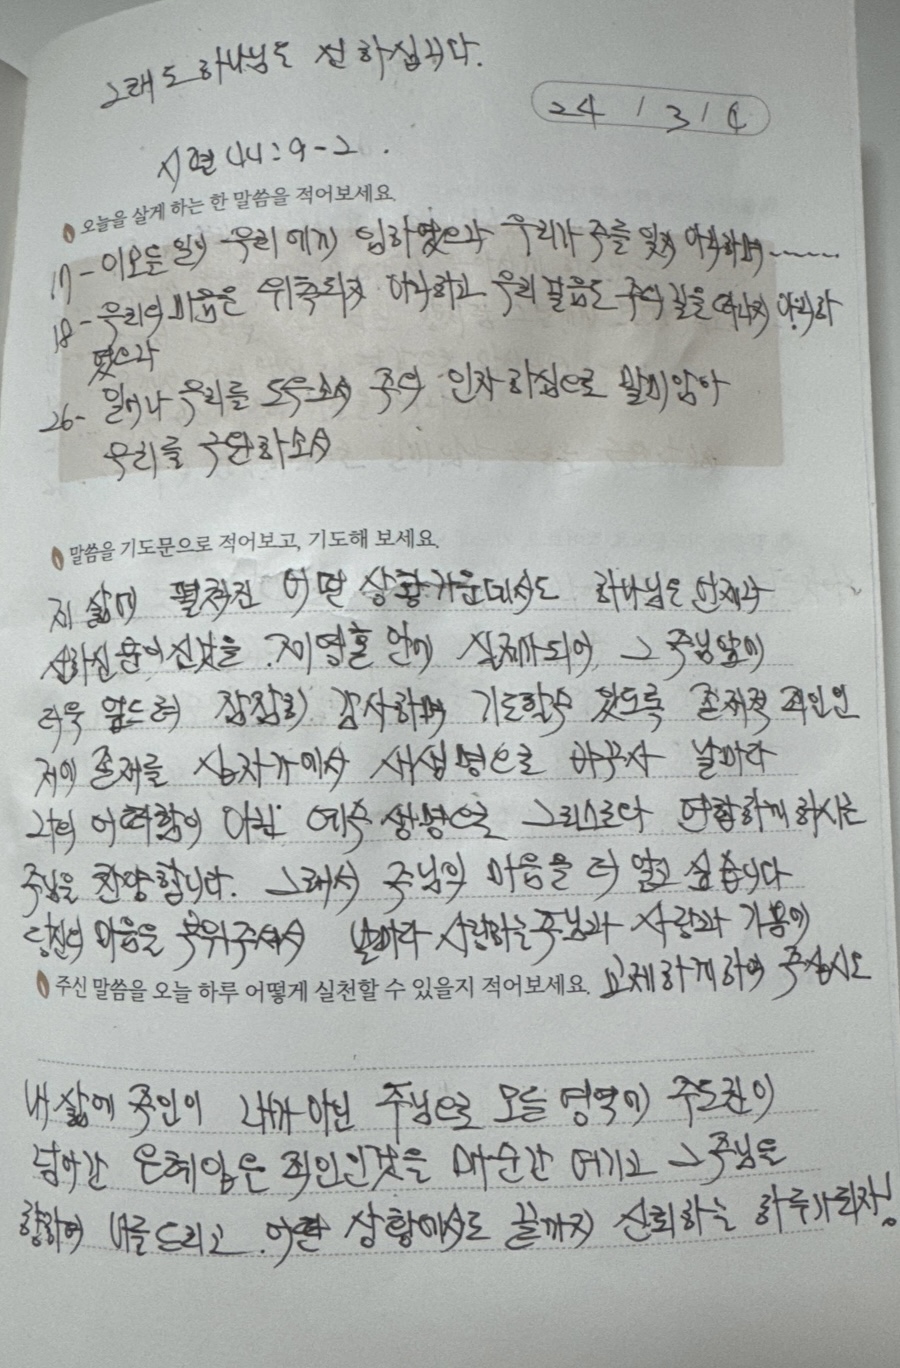 그래도 하나님은 선하십니다.
24 / 3 / 4
시편 44:9-2
오늘을 살게 하는 한 말씀을 적어보세요.
17- 이 모든 일이 우리에게 임하였으나 우리가 주를 잊지 아니하며 ......
18- 우리의 마음은 위축되지 아니하고 우리 걸음도 주의 길을 떠나지 아니하
였으나
26- 일어나 우리를 도우소서 주의 인자하심으로 말미암아
우리를 구원하소서
말씀을 기도문으로 적어보고, 기도해 보세요.
제 삶에 펼쳐진 어떤 상황가운데서도 하나님은 언제나
선하신 분이신것을 제 영혼 안에 실제가되어 그 주님앞에
더욱 엎드려 잠잠히 감사하며 기도할수 있도록 존재적 죄인인
저의 존재를 십자가에서 새생명으로 바꾸사 날마다
나의 어떠함이 아닌 예수 생명으로 연합하게 하시는
주님을 찬양합니다. 그래서 주님의 마음을 더 알고 싶습니다
당신의 마음을 부워주셔서 날마다 사랑하는 주님과 사랑과 기쁨에
교제하게하여 주십시오
주신 말씀을 오늘 하루 어떻게 실천할 수 있을지 적어보세요.
내 삶에 주인이 나가 아닌 주님으로 모든 영역이 주도권이
넘어간 은혜입은 죄인인것을 매순간 여기고 그 주님을
향하여 나를 드리고 어떤 상황에서도 끝까지 신뢰하는 하루가되자!